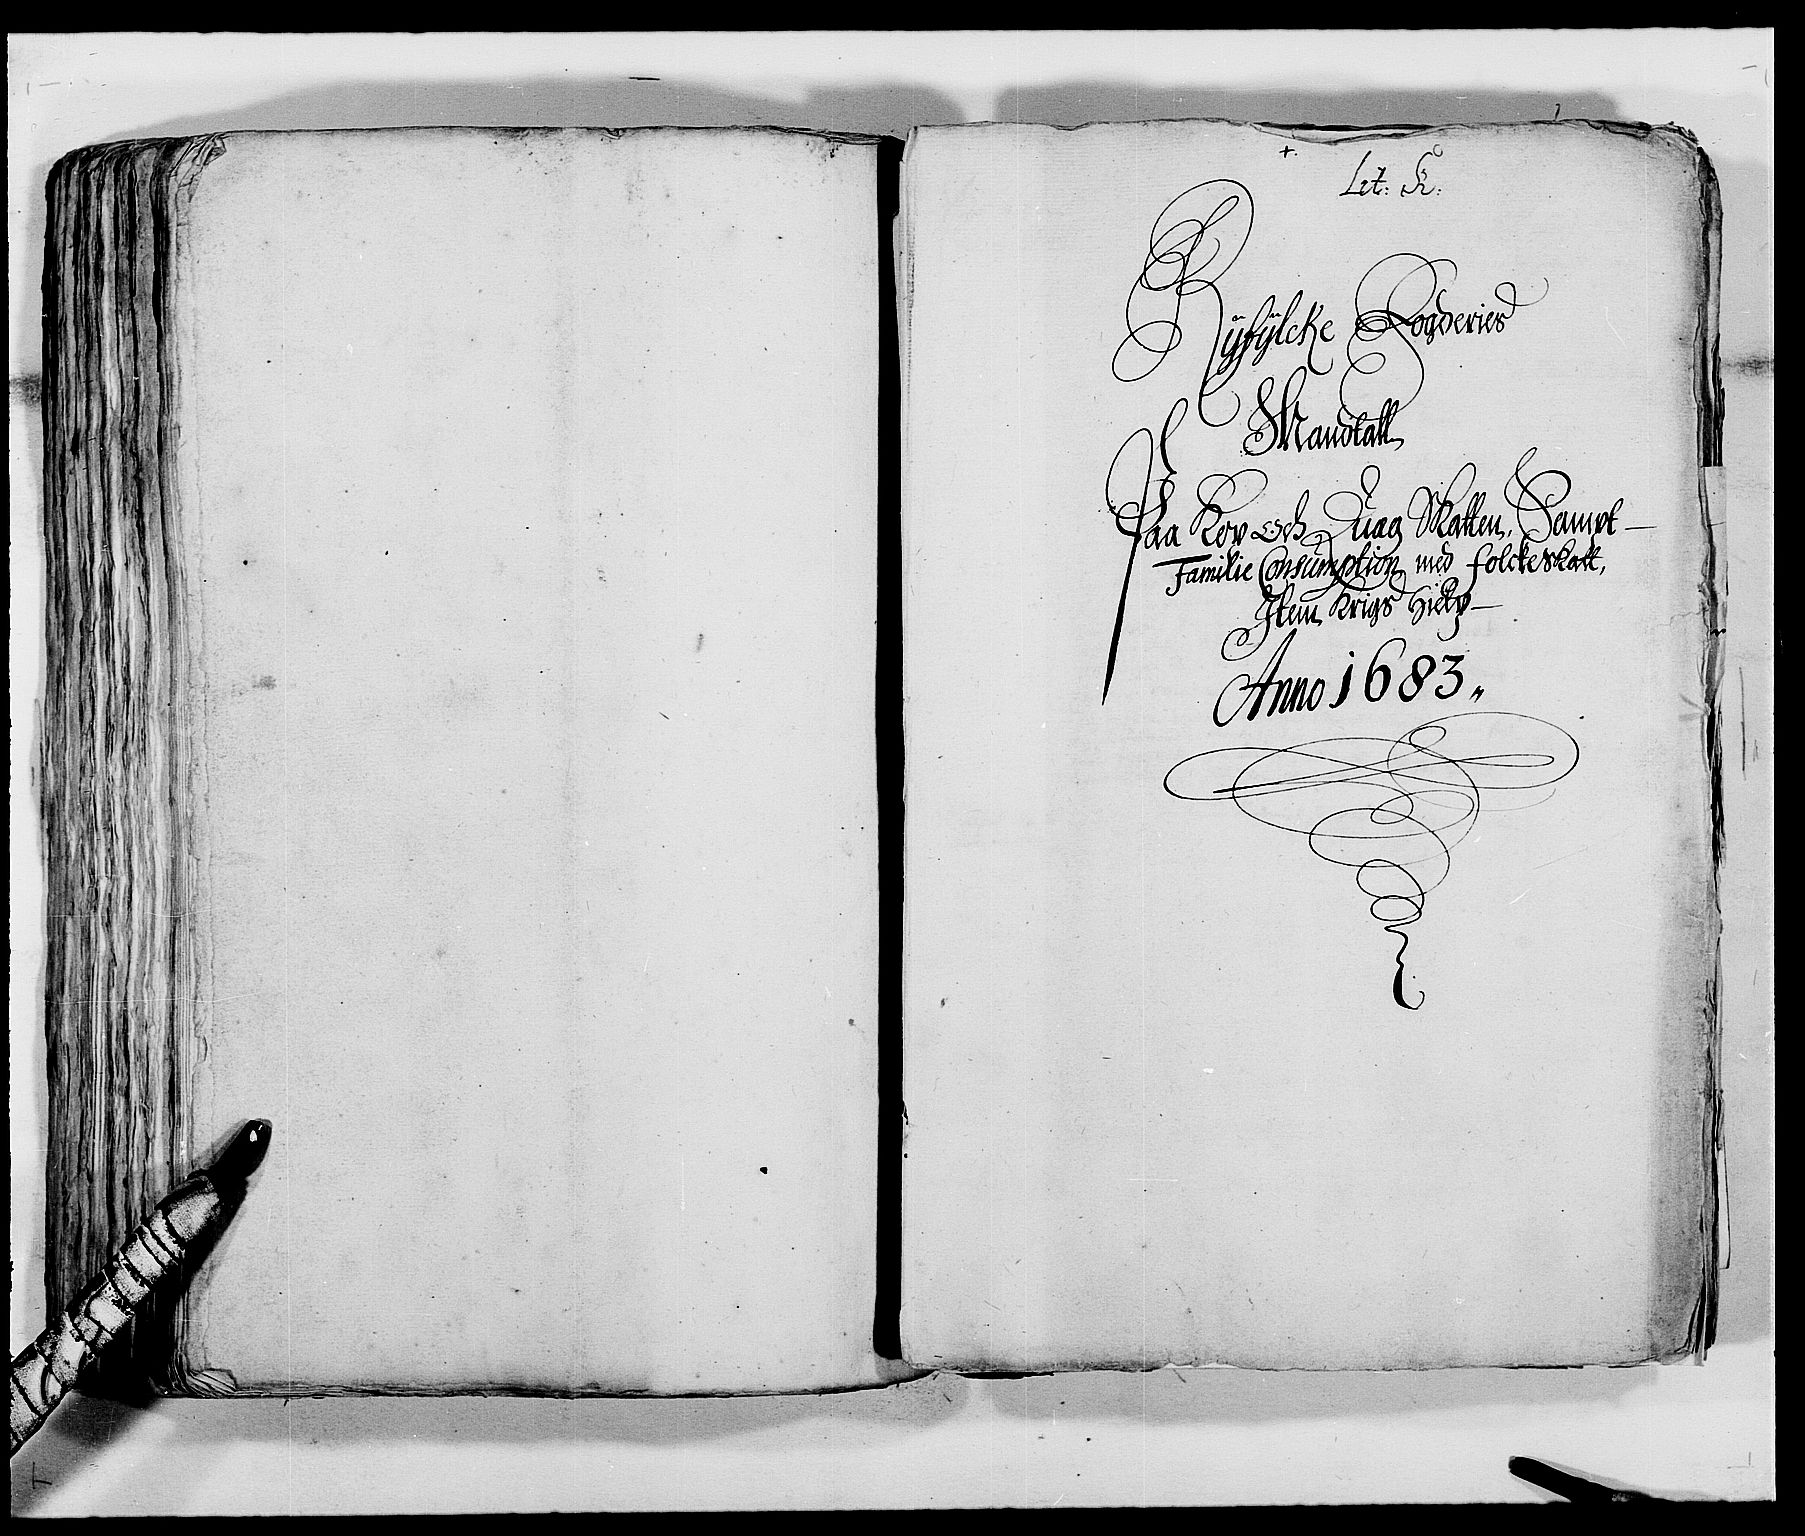 Lit: K:
Ryfylcke Fogderies
Mandtall
Paa Kop och Quæg Skatten, Sampt
Familie Consumption med folckeskatt,
Item Krigs Hielp
Anno 1683